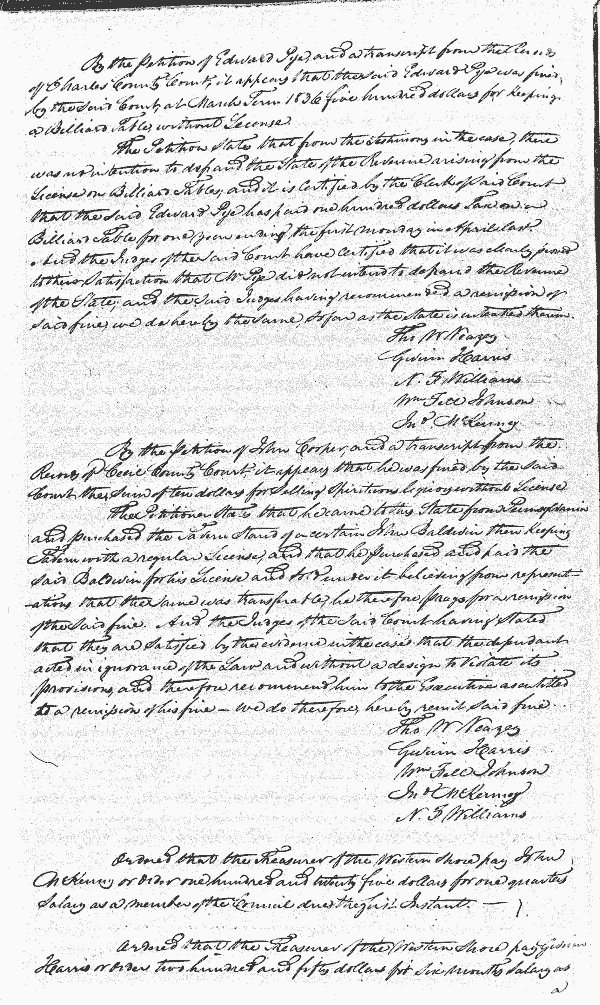 By the Petition of Edward Pye, and a transcript from the
of Charles County Court, it appears that the said Edward Pye was fined,
by the said Court, at March Term 1836 five hundred dollars for keeping
a Billiard Table, without License.
The Petition States that from the testimony in the case, there
was no intention to defraud the State of the Revenue arising from the
License on Billiard Tables, and it is certified by the Clerk of said Court
that the said Edward Pye has paid one hundred dollars Tax on a
Billiard Table for one year ending the first monday in April last.
And the Judges of the said Court have certified that it was clearly proved
to their Satisfaction that Mr Pye did not intend to defraud the Revenue
of the State, and the said Judges having recommended a remission of
said fine, we do hereby the same, so far as the State is therein.
Tho W Veazey
Gwinn Harris
N. F Williams
Wm Fell Johnson
Jno McKenney
By the Petition of John Cooper, and a transcript from the
Records of Cecil County Court, it appears that he was fined by the said
Court the sum of ten dollars for selling spirituous liquors without License
The Petitioner States that he came to this State from Pennsylvania
and purchased the Tavern Stand of a certain John Baldwin then keeping
Tavern with a regular License, and that he purchased and paid the
said Baldwin for his License and sold under it believing from represent-
-ations that the same was transferable, he therefore prays for a remission
of the said fine. And the Judges of the said Court having stated
that they are satisfied by the evidence in the cases that the defendant
acted in ignorance of the Law and without a design to violate its
provisions, and therefore recommend him to the Executive as entitled
to a remission of his fine – we do therefore, hereby remit said fine
Tho W Veazey
Gwinn Harris
Wm Fell Johnson
Jno McKenney
N. F Williams
Ordered that the Treasurer of the Western Shore pay John
McKenney or order one hundred and twenty five dollars for one quarters
Salary as a member of the Council due the first Instant. —
Ordered that the Treasurer of the Western Shore pay Gwinn
Harris or order two hundred and fifty dollars for six months Salary as
a